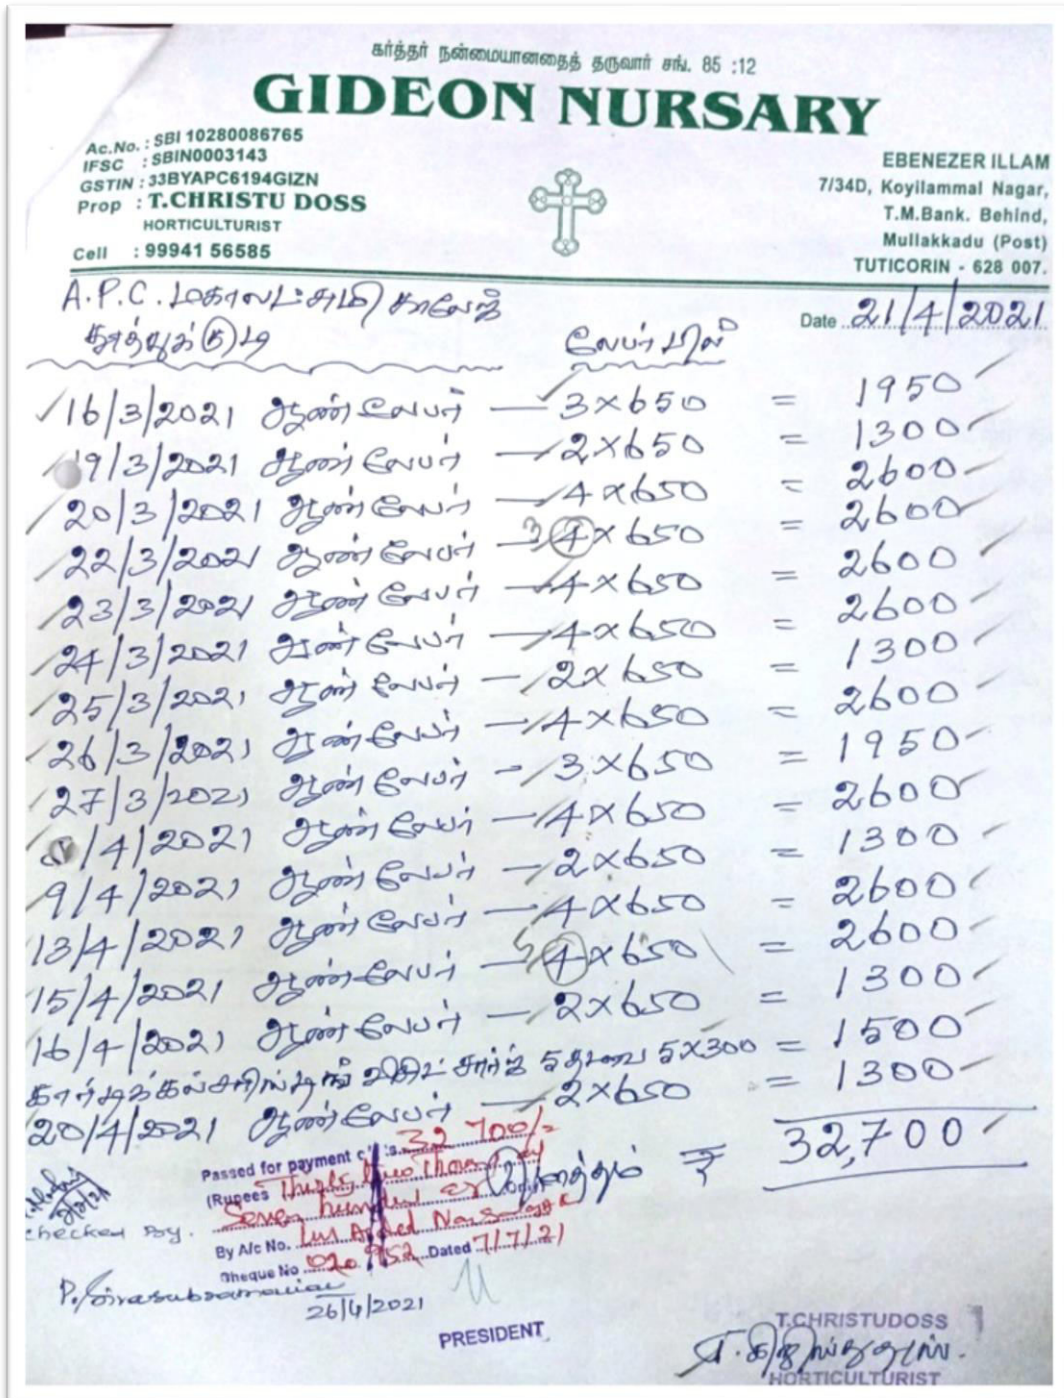 கர்த்தர் நன்மையானதைத் தருவார் சங். 85 :12
GIDEON NURSARY
Ac.No. : SBI 10280086765
IFSC : SBIN0003143
GSTIN : 33BYAPC6194GIZN
Prop : T.CHRISTU DOSS
HORTICULTURIST
Cell : 99941 56585
EBENEZER ILLAM
7/34D, Koyilammal Nagar,
T.M.Bank. Behind,
Mullakkadu (Post)
TUTICORIN - 628 007.
A.P.C. மகாலட்சுமி காலேஜ்
தூத்துக்குடி
Date 21/4/2021
லேபர் பில்
16/3/2021 ஆண் லேபர் — 3 × 650 = 1950
19/3/2021 ஆண் லேபர் — 2 × 650 = 1300
20/3/2021 ஆண் லேபர் — 4 × 650 = 2600
22/3/2021 ஆண் லேபர் — 4 × 650 = 2600
23/3/2021 ஆண் லேபர் — 4 × 650 = 2600
24/3/2021 ஆண் லேபர் — 4 × 650 = 2600
25/3/2021 ஆண் லேபர் — 2 × 650 = 1300
26/3/2021 ஆண் லேபர் — 4 × 650 = 2600
27/3/2021 ஆண் லேபர் — 3 × 650 = 1950
/4/2021 ஆண் லேபர் — 4 × 650 = 2600
9/4/2021 ஆண் லேபர் — 2 × 650 = 1300
13/4/2021 ஆண் லேபர் — 4 × 650 = 2600
15/4/2021 ஆண் லேபர் — 4 × 650 = 2600
16/4/2021 ஆண் லேபர் — 2 × 650 = 1300
விசிட் சார்ஜ் 5 தடவை 5 × 300 = 1500
20/4/2021 ஆண் லேபர் — 2 × 650 = 1300
மொத்தம் ₹ 32,700
Passed for payment of Rs. 32 700/-
(Rupees Thirty two Thousand
Seven hundred Only)
By A/c No.
Cheque No 020952 Dated 7/7/21
Checked By.
P. Sivasubramanian
26/4/2021
PRESIDENT
T.CHRISTUDOSS
T. கிறிஸ்துதாஸ்.
HORTICULTURIST